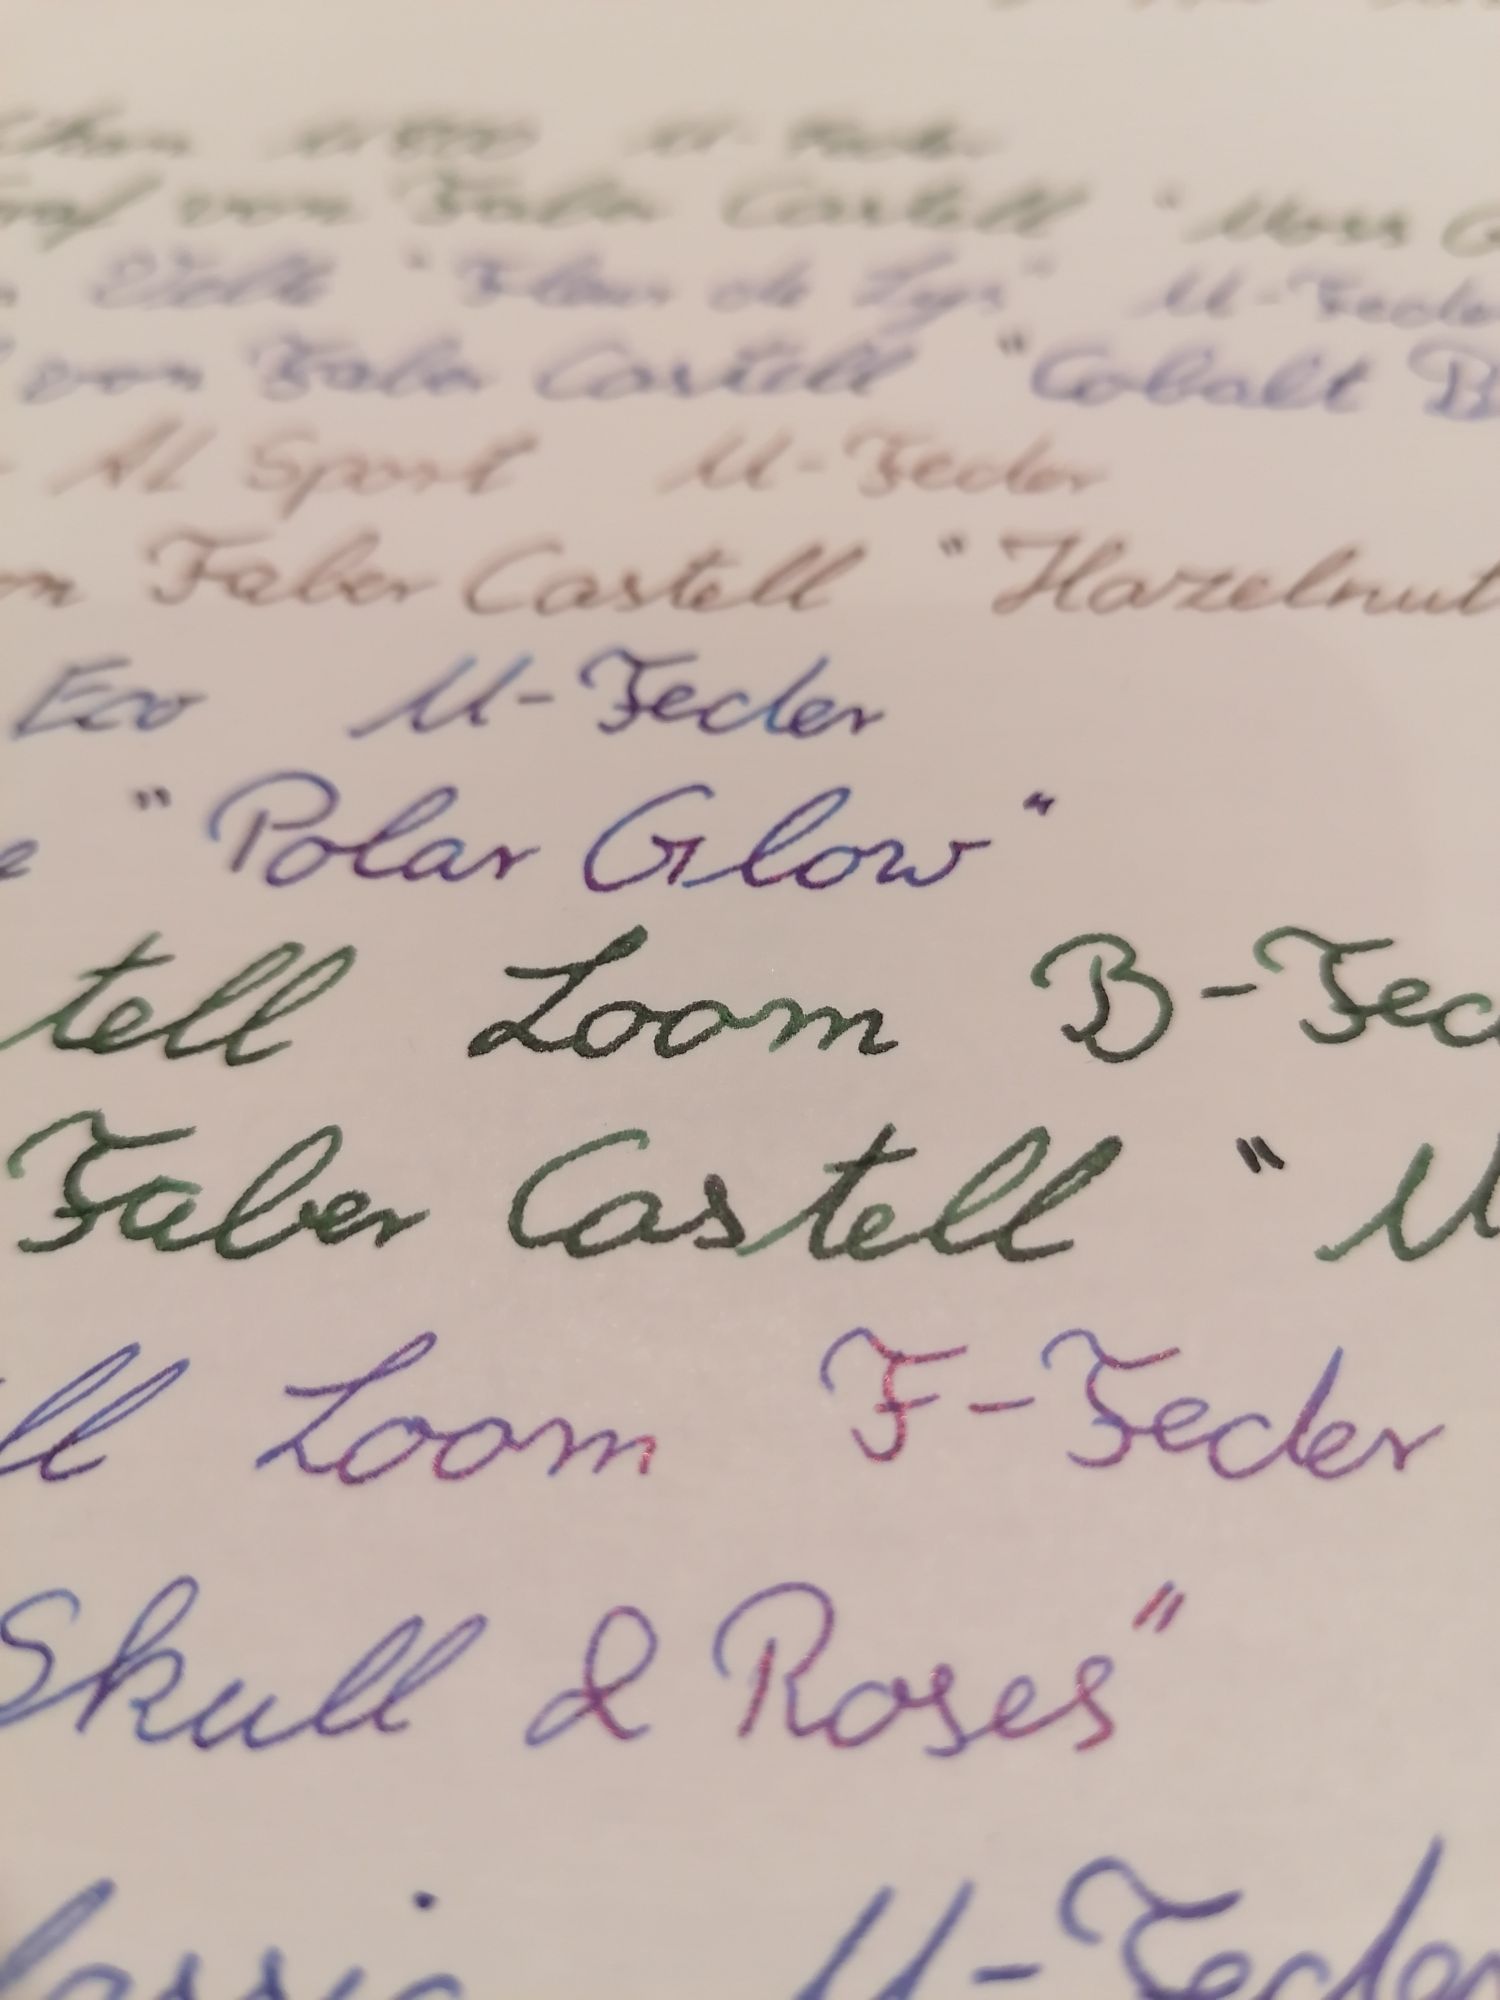 M-Feder
von Faber Castell "Moss G
"Fleur de Lys" M-Feder
von Faber Castell "Cobalt B
AL Sport M-Feder
on Faber Castell "Hazelnut
Eco M-Feder
e "Polar Glow"
tell Loom B-Fed
Faber Castell "M
ll Loom F-Feder
Skull & Roses"
lassic M-Feder